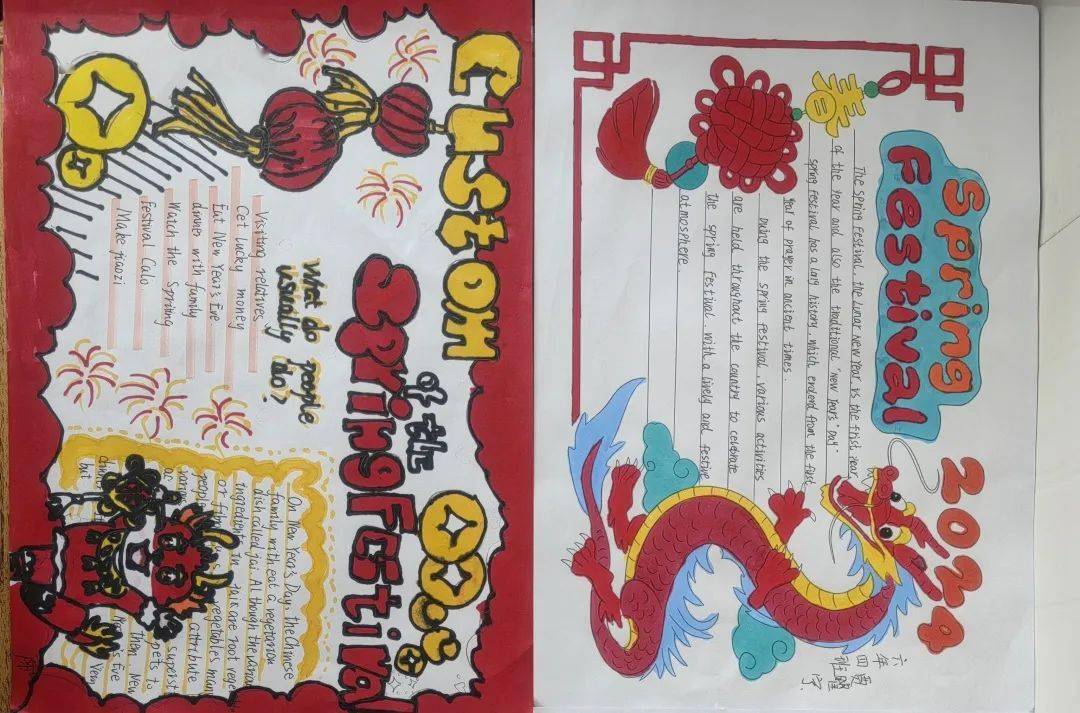 Custom
of the
Spring Festival
What do people
usually do?
Visiting relatives
Get lucky money
Eut New Year's Eve
dinner with family
Watch the Spriting
Festival Calo
Make jiaozi
On New Year's Day, the Chinese
family with eat a vegetarian
dish called jai. Although the
ingredients in jai are root vege
or
vegetables many
people attribute
various superst
ac
then New
Year's Eve
but
Spring
Festival
2024
春
The Spring Festival, the Lunar New Year, is the first year
of the year and also the traditional "New Year's Day".
Spring Festival has a long history which evolerd from the first
year of prayer in ancient times.
During the spring festival, various activities
are held throughout the country to celebrate
the spring festival with a lively and festive
atmosphere.
六年
四班